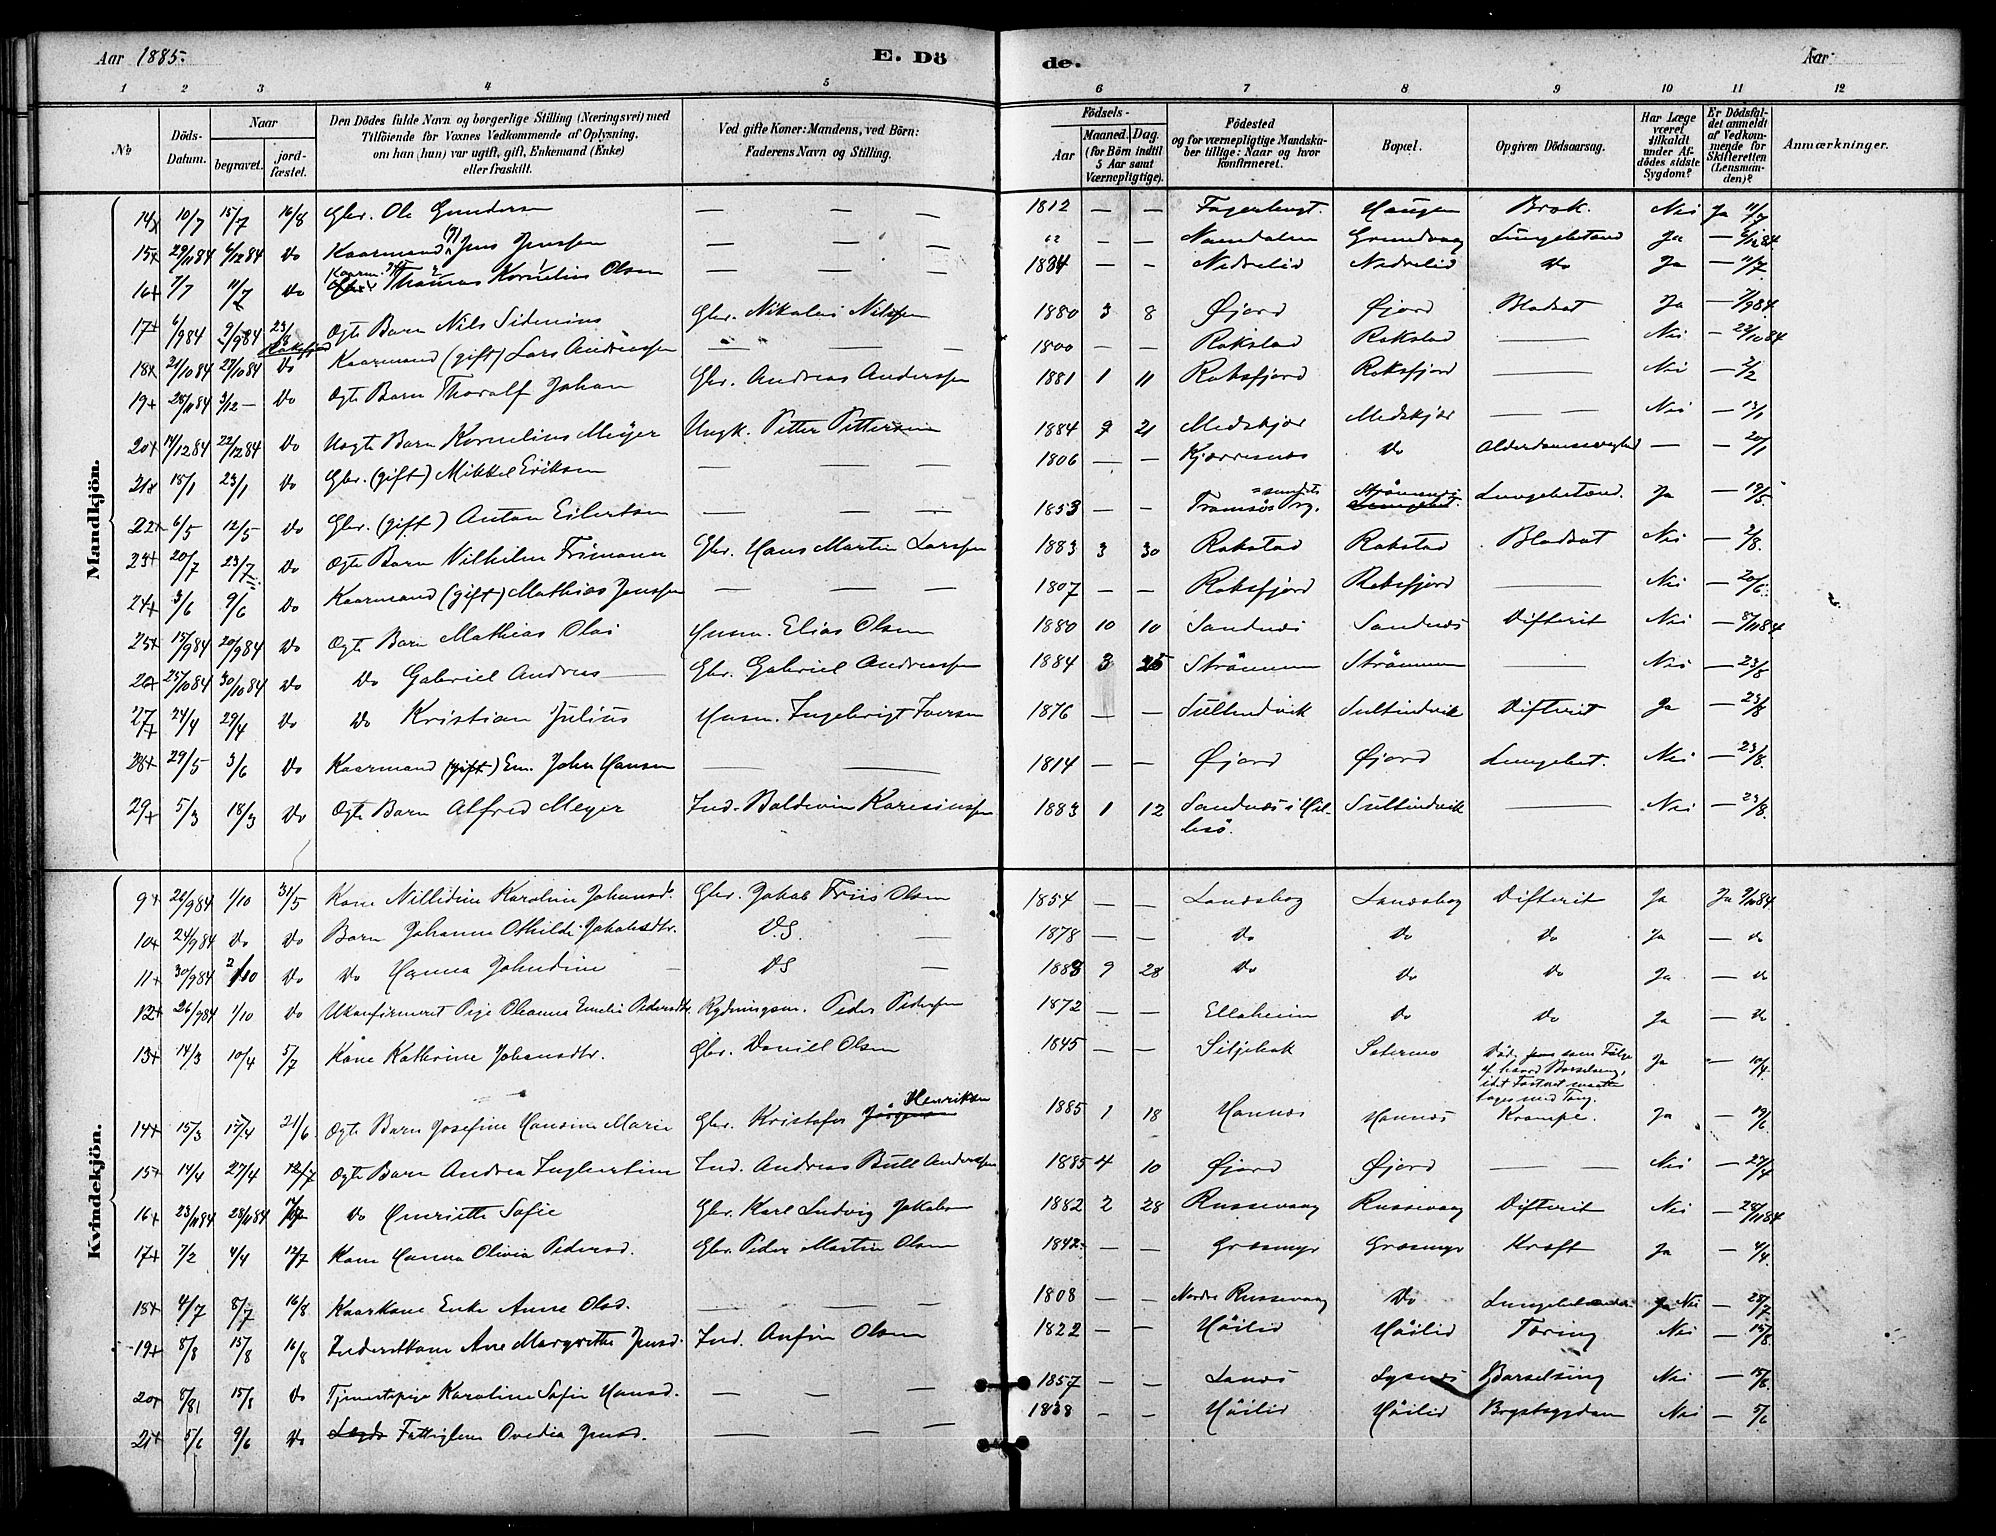 Aar 1885. E. Dö de. Aar
1 2 3 4 5 6 7 8 9 10 11 12
No Döds-Datum. Naar begravet. jordfæstet. Den Dödes fulde Navn og borgerlige Stilling (Næringsvei) med Tilföiende for Voxnes Vedkommende af Oplysning, om han (hun) var ugift, gift, Enkemand (Enke) eller fraskilt. Ved gifte Koner: Mandens, ved Börn: Faderens Navn og Stilling. Födsels- Aar Maaned. Dag. (for Börn indtil 5 Aar samt Værnepligtige). Födested og for værnepligtige Mandskaber tillige: Naar og hvor konfirmeret. Bopæl. Opgiven Dödsaarsag. Har Læge været tilkaldt under Afdödes sidste Sygdom? Er Dödsfaldet anmeldt af Vedkommende for Skifteretten (Lensmanden)? Anmærkninger.
Mandkjön.
14 10/7 15/7 16/8 Gbr. Ole Gundersen — — — 1812 — — Fagerhaugt. Haugen Brok. Nei Ja 11/7
15 29/11 84 6/12 84 Do Kaarmand Jens Jenssen — — — 62 — — Namdalen Grundvaag Lungebetænd Ja — 6/12 84
16 7/7 11/7 Do Kaarm. Thomas Kornelius Olsen — — — 1834 — — Nedrelid Nedrelid Do Ja — 11/7
17 6/9 84 9/9 84 23/8 Raksfjord Ægte Barn Nils Sidenius Gbr. Nikolai Nilssen 1880 3 8 Øjord Øjord Blodsot Ja — 7/9 84
18 21/10 84 27/10 84 Do Kaarmand (gift) Lars Andreassen — — — 1800 — — Rakstad Rakstad — Nei — 29/10 84
19 28/11 84 3/12 — Do Ægte Barn Thoralf Johan Gbr. Andreas Anderssen 1881 1 11 Raksfjord Raksfjord — Nei — 2/2
20 14/12 84 22/12 84 Do Uægt Barn Kornelius Meyer Ungk. Petter Pettersen 1884 9 21 Medskjær Medskjær — Nei — 13/1
21 18/1 23/1 Do Gbr. (gift) Mikkel Eriksen — — — 1806 — — Kjærresnes Do Alderdomssvaghed — — 20/1
22 6/5 12/5 Do Gbr. (gift) Anton Eilertsen — — — 1853 — — Tromsøsundets Prg. Lungebetænd. Ja — 19/5
23 20/7 23/7 Do Ægte Barn Vilhelm Frimann Gbr. Hans Martin Larssen 1883 3 30 Rakstad Rakstad Blodsot Nei — 2/8.
24 3/6 9/6 Do Kaarmand (gift) Mathias Jenssen — — — 1807 — — Raksfjord Raksfjord — Nei — 20/6.
25 15/9 84 20/9 84 Do Ægte Barn Mathias Olai Husm. Elias Olsen 1880 10 10 Sandnes Sandnes Difterit Nei — 8/11 84
26 25/10 84 30/10 84 Do Do Gabriel Andreas — Gbr. Gabriel Andreassen 1884 3 25 Strømmen Strømmen — Nei — 23/8
27 24/4 29/4 Do Do Kristian Julius Husm. Ingebrigt Iversen 1876 — — Sultindvik Sultindvik Difterit Ja — 23/8
28 29/5 3/6 Do Kaarmand (gift) Em. John Hansen — — 1814 — — Øjord Øjord Lungebet. Nei — 23/8.
29 5/3 18/3 Do Ægte Barn Alfred Meyer Ind. Baldevin Karesiussen 1883 1 12 Sandnes i Hillesø. Sultindvik — Nei — 23/8.
Kvindekjön.
9 21/9 84 1/10 31/5 Kone Nillidine Karoline Johansd. Gbr. Jakob Friis Olsen 1854 — — Landsbog Landsbog Difterit Ja Ja 9/11 84
10 24/9 84 Do Do Barn Johanna Othilde Jakobsdtr. D.S. — 1878 — — Do Do Do Ja — do
11 30/9 84 2/10 Do Do Hanna Johndine — DS — 1883 9 28 Do Do Do Ja — do
12 26/9 84 1/10 Do Ukonfirmeret Pige Oleanna Emelie Pedersdtr. Rydningsm. Peder Pedersen 1872 — — Ellaheim Do Do Ja — do
13 14/3 10/4 5/7 Kone Kathrine Johansdtr. Gbr. Daniel Olsen 1845 — — Siljebak Sætermo Død som Følge af haard Barselseng, idet Fosteret maatte tages med Tang. Ja — 10/4.
14 15/3 17/4 21/6. Ægte Barn Josefine Hansine Marie Gbr. Kristofer Jørgensen Henriksen 1885 1 18 Hannæs Hannæs Krampe. Ja — 19/6
15 14/4 27/4 12/7 Ægte Barn Andrea Ingbertine Ind. Andreas Bull Anderssen 1885 4 10 Øjord Øjord — Nei — 27/4
16 23/11 84 28/11 84 Do Henriette Sofie Gbr. Karl Ludvig Jakobsen 1882 2 28 Russevaag Russevaag Difterit Nei — 28/11 84
17 7/2 4/4 12/7 Kone Hanna Olivia Pedersd. Gbr. Peder Martin Olsen 1842 — — Græsmyr Græsmyr Kræft Ja — 4/4.
18 4/7 8/7 16/8 Kaarkone Enke Anne Olsd. — — — 1808 — — Nordre Russevaag Do Lungebetændelse Ja Nei — 28/7
19 8/8 15/8 16/8 Inderstkone Ane Margrethe Jensd. Ind. Anfin Olsen 1822 — — Høilid Høilid Tæring Nei — 15/8.
20 8/81 15/8 Do Tjenestepige Karoline Sofie Hansd. — — — 1857 — — Lanes Lysnes Barselseng Nei — 15/8.
21 5/6 9/6 Do Lægds Fattiglem Ovedia Jensd. — — — 1838 — — Høilid Høilid Brystsygdom Nei — 5/6